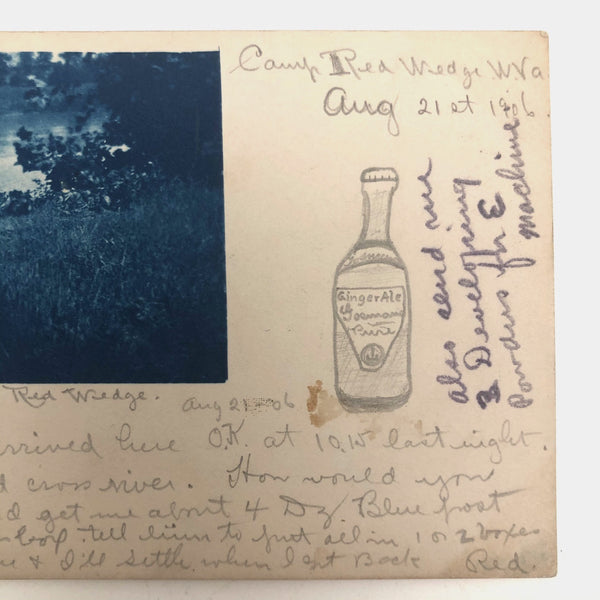 Camp Red Wedge W Va
Aug 21st 1906.
Ginger Ale
Pure
also send me
3 Developing
Powders for E
machine
Red Wedge.
Aug 21 - 06
arrived here O.K. at 10.15 last night.
cross river. How would you
get me about 4 Dz Blue post
tell him to put all in 1 or 2 boxes
& I'll settle when I get Back Red.